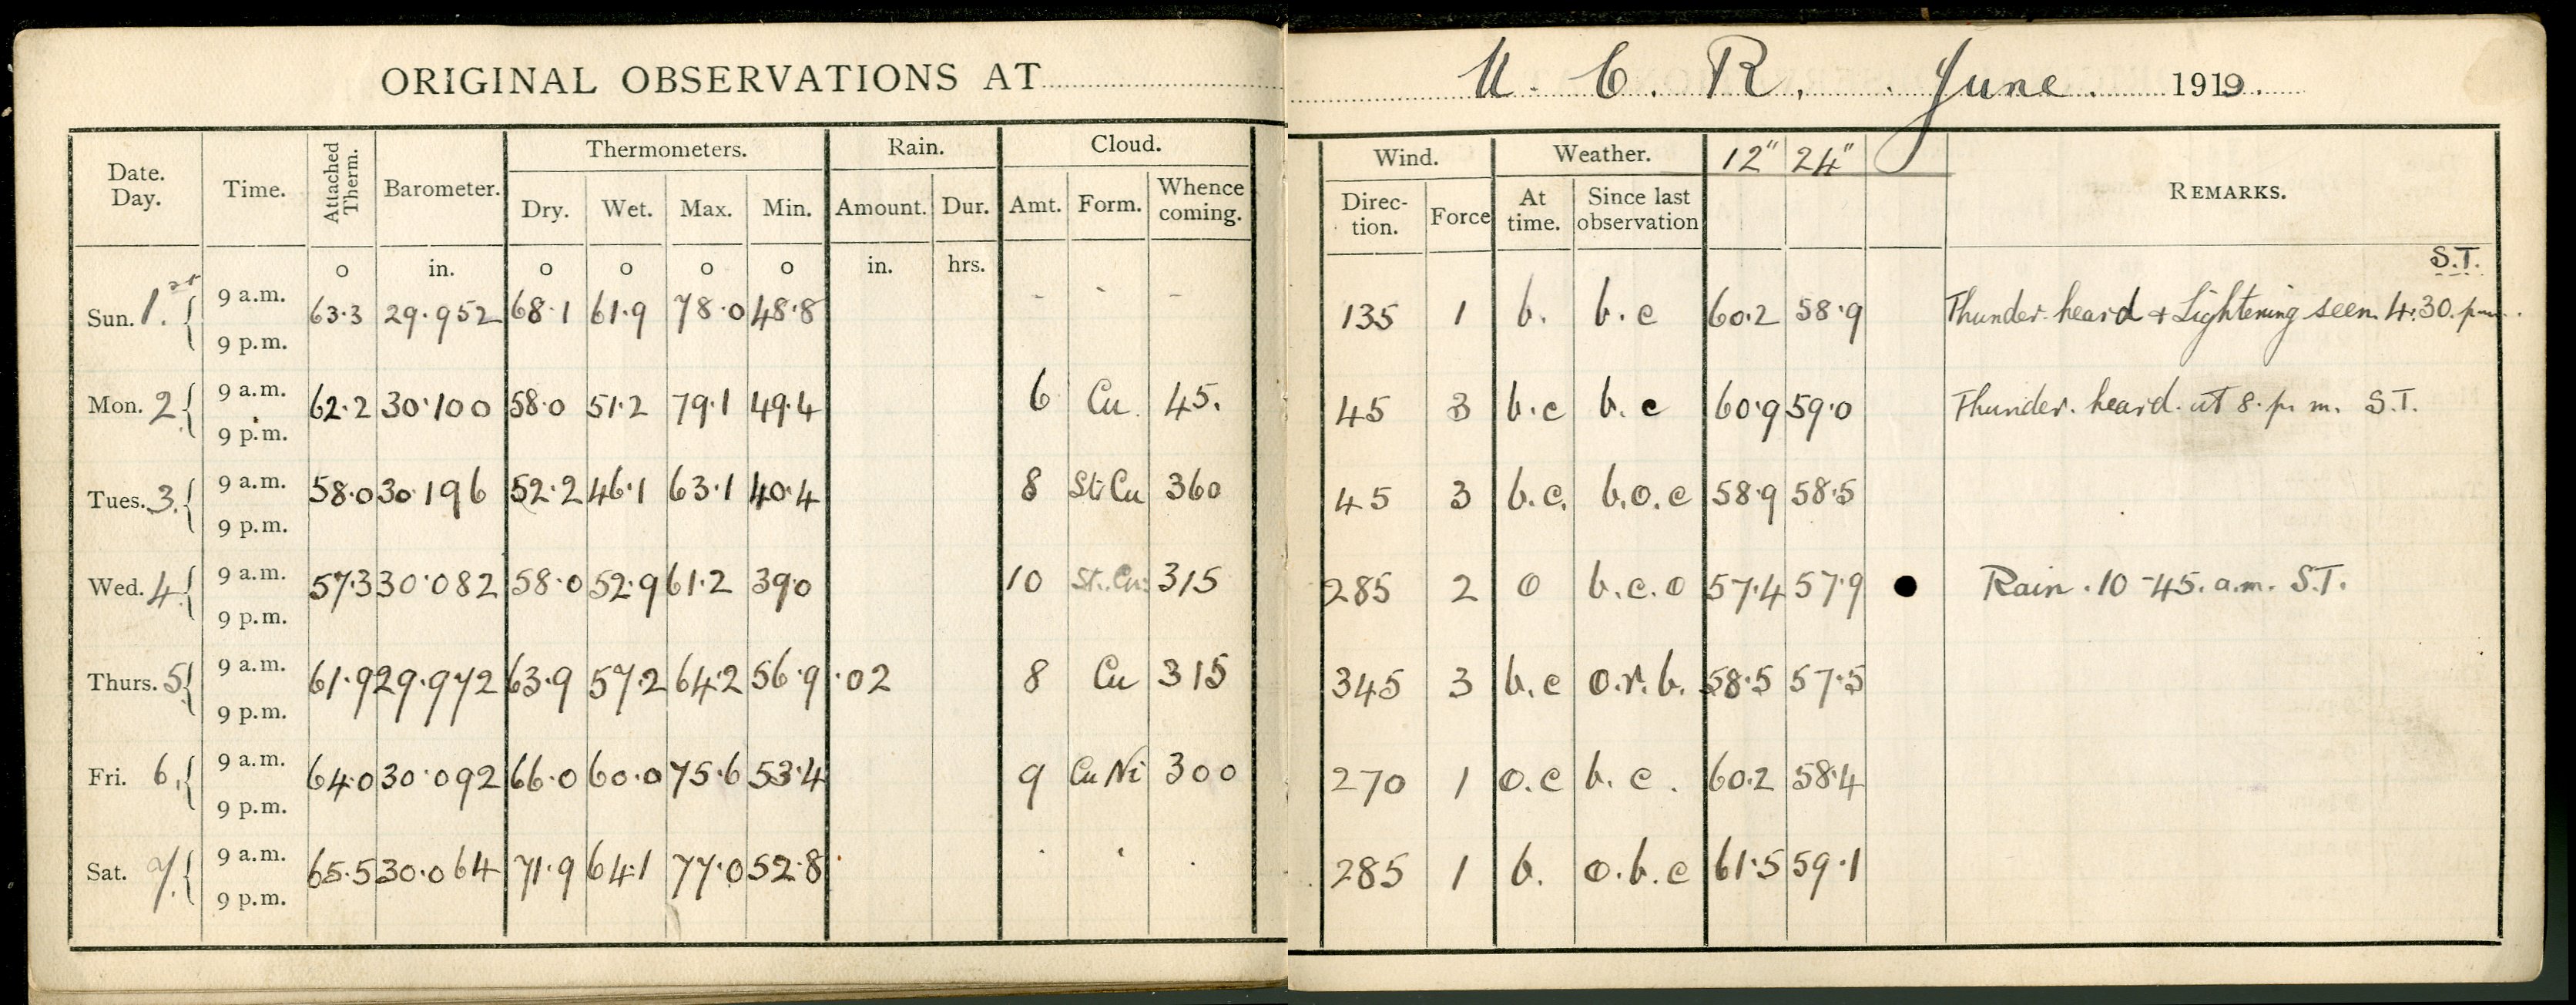 ORIGINAL OBSERVATIONS AT U. C. R. June. 1919.
Date. Day. Time. Attached Therm. Barometer. Thermometers. Rain. Cloud. Wind. Weather. 12" 24" REMARKS.
Dry. Wet. Max. Min. Amount. Dur. Amt. Form. Whence coming. Direc- tion. Force At time. Since last observation
o in. o o o o in. hrs. S.T.
Sun. 1.st 9 a.m. 63.3 29.952 68.1 61.9 78.0 48.8 - - - 135 1 b. b.c 60.2 58.9 Thunder heard & Lightening seen 4.30. p.m.
9 p.m.
Mon. 2 9 a.m. 62.2 30.100 58.0 51.2 79.1 49.4 6 Cu. 45. 45 3 b.c b.c 60.9 59.0 Thunder. heard. at 8. p. m. S.T.
9 p.m.
Tues. 3. 9 a.m. 58.0 30.196 52.2 46.1 63.1 40.4 8 St.Cu 360 45 3 b.c. b.o.c 58.9 58.5
9 p.m.
Wed. 4 9 a.m. 57.3 30.082 58.0 52.9 61.2 39.0 10 St.Cu. 315 285 2 o b.c.o 57.4 57.9 ● Rain. 10-45. a.m. S.T.
9 p.m.
Thurs. 5 9 a.m. 61.9 29.972 63.9 57.2 64.2 56.9 .02 8 Cu 315 345 3 b.c o.r.b. 58.5 57.5
9 p.m.
Fri. 6. 9 a.m. 64.0 30.092 66.0 60.0 75.6 53.4 9 Cu Ni 300 270 1 o.c b.c. 60.2 58.4
9 p.m.
Sat. 7. 9 a.m. 65.5 30.064 71.9 64.1 77.0 52.8 . . . 285 1 b. o.b.c 61.5 59.1
9 p.m.